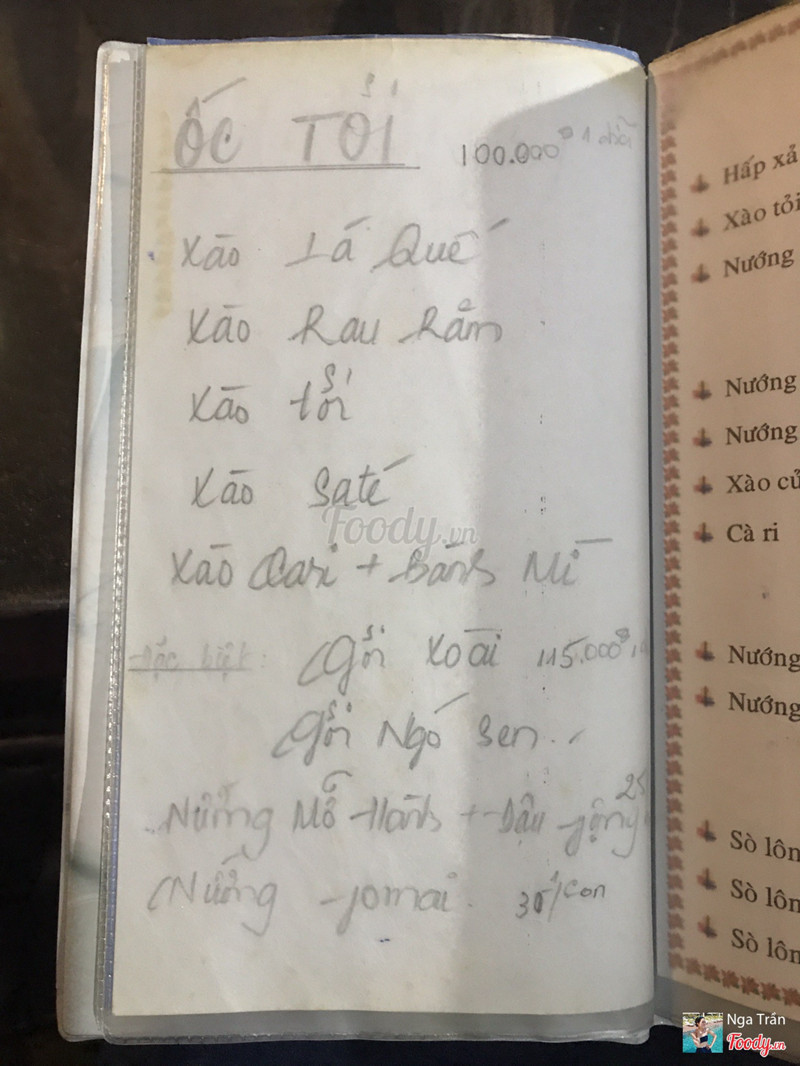 ỐC TỎI 100.000đ 1 dĩa
Xào Lá Quế
Xào Rau Răm
Xào tỏi
Xào Saté
Xào Cari + Bánh Mì
Đặc biệt: Gỏi Xoài 115.000đ
Gỏi Ngó Sen
Nướng Mỡ Hành + Đậu phộng 25
Nướng phomai 30đ/con
Hấp xả
Xào tỏi
Nướng
Nướng
Nướng
Xào củ
Cà ri
Nướng
Nướng
Sò lôn
Sò lôn
Sò lôn
Foody.vn
Nga Trần
Foody.vn